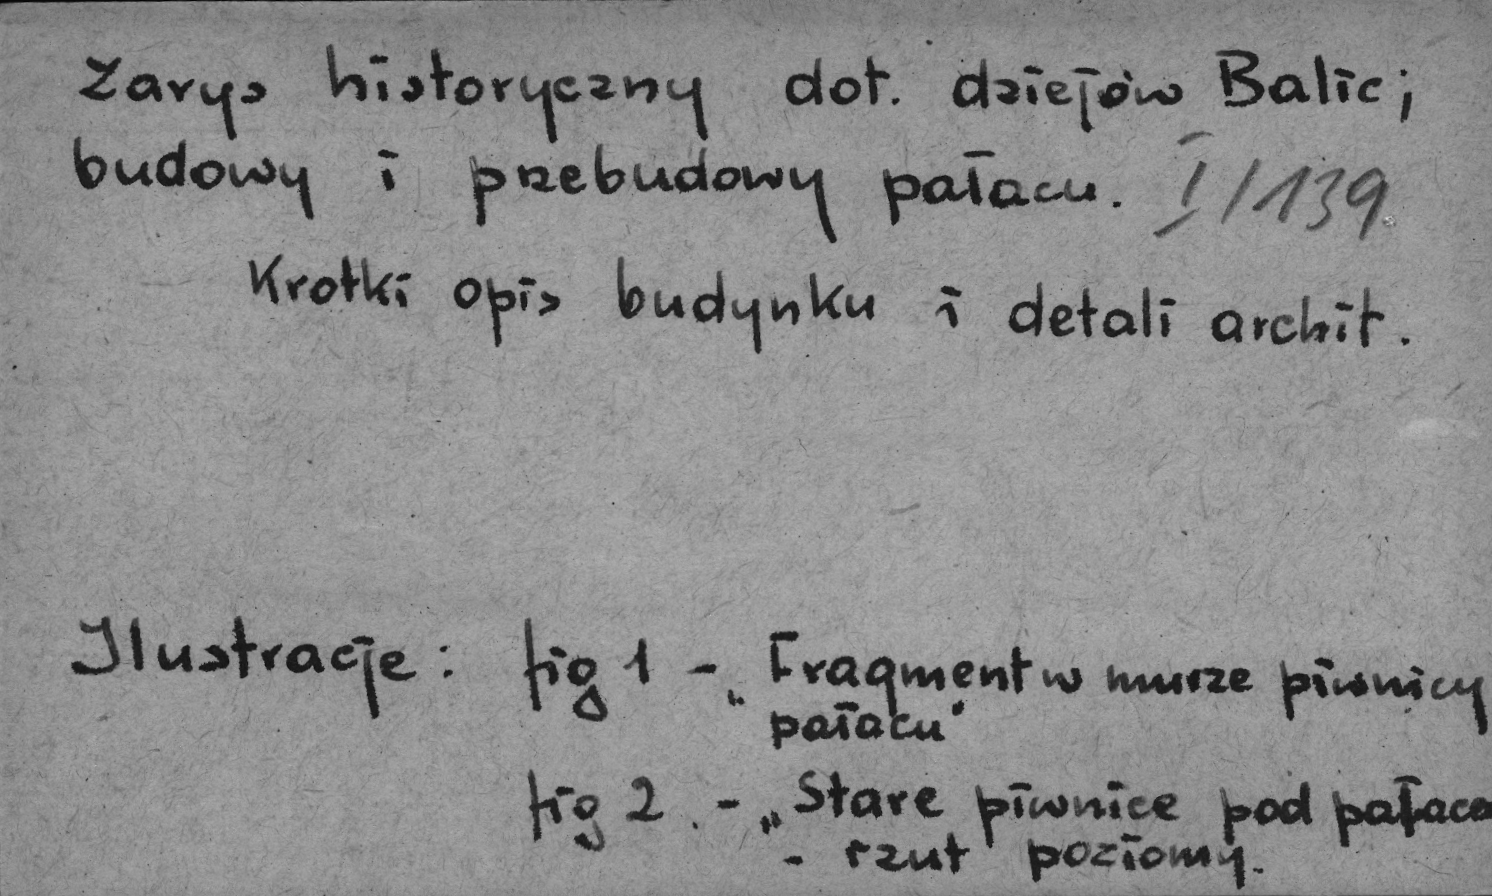 Zarys historyczny dot. dziejów Balic;
budowy i przebudowy pałacu. I/139
Krotki opis budynku i detali archit.
Ilustracje: fig 1 - „Fragment w murze piwnicy
pałacu"
fig 2. - „Stare piwnice pod pałace
- rzut poziomy.